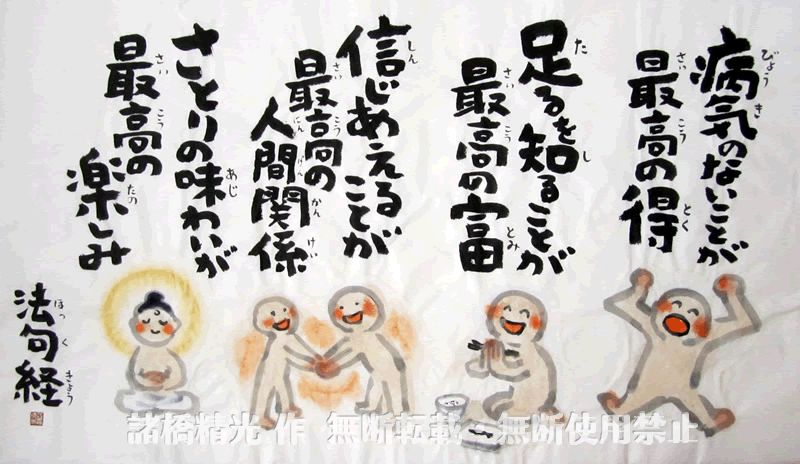 病気のないことが
最高の得
足るを知ることが
最高の富
信じあえることが
最高の
人間関係
さとりの味わいが
最高の
楽しみ
法句経
諸橋精光 作 無断転載・無断使用禁止